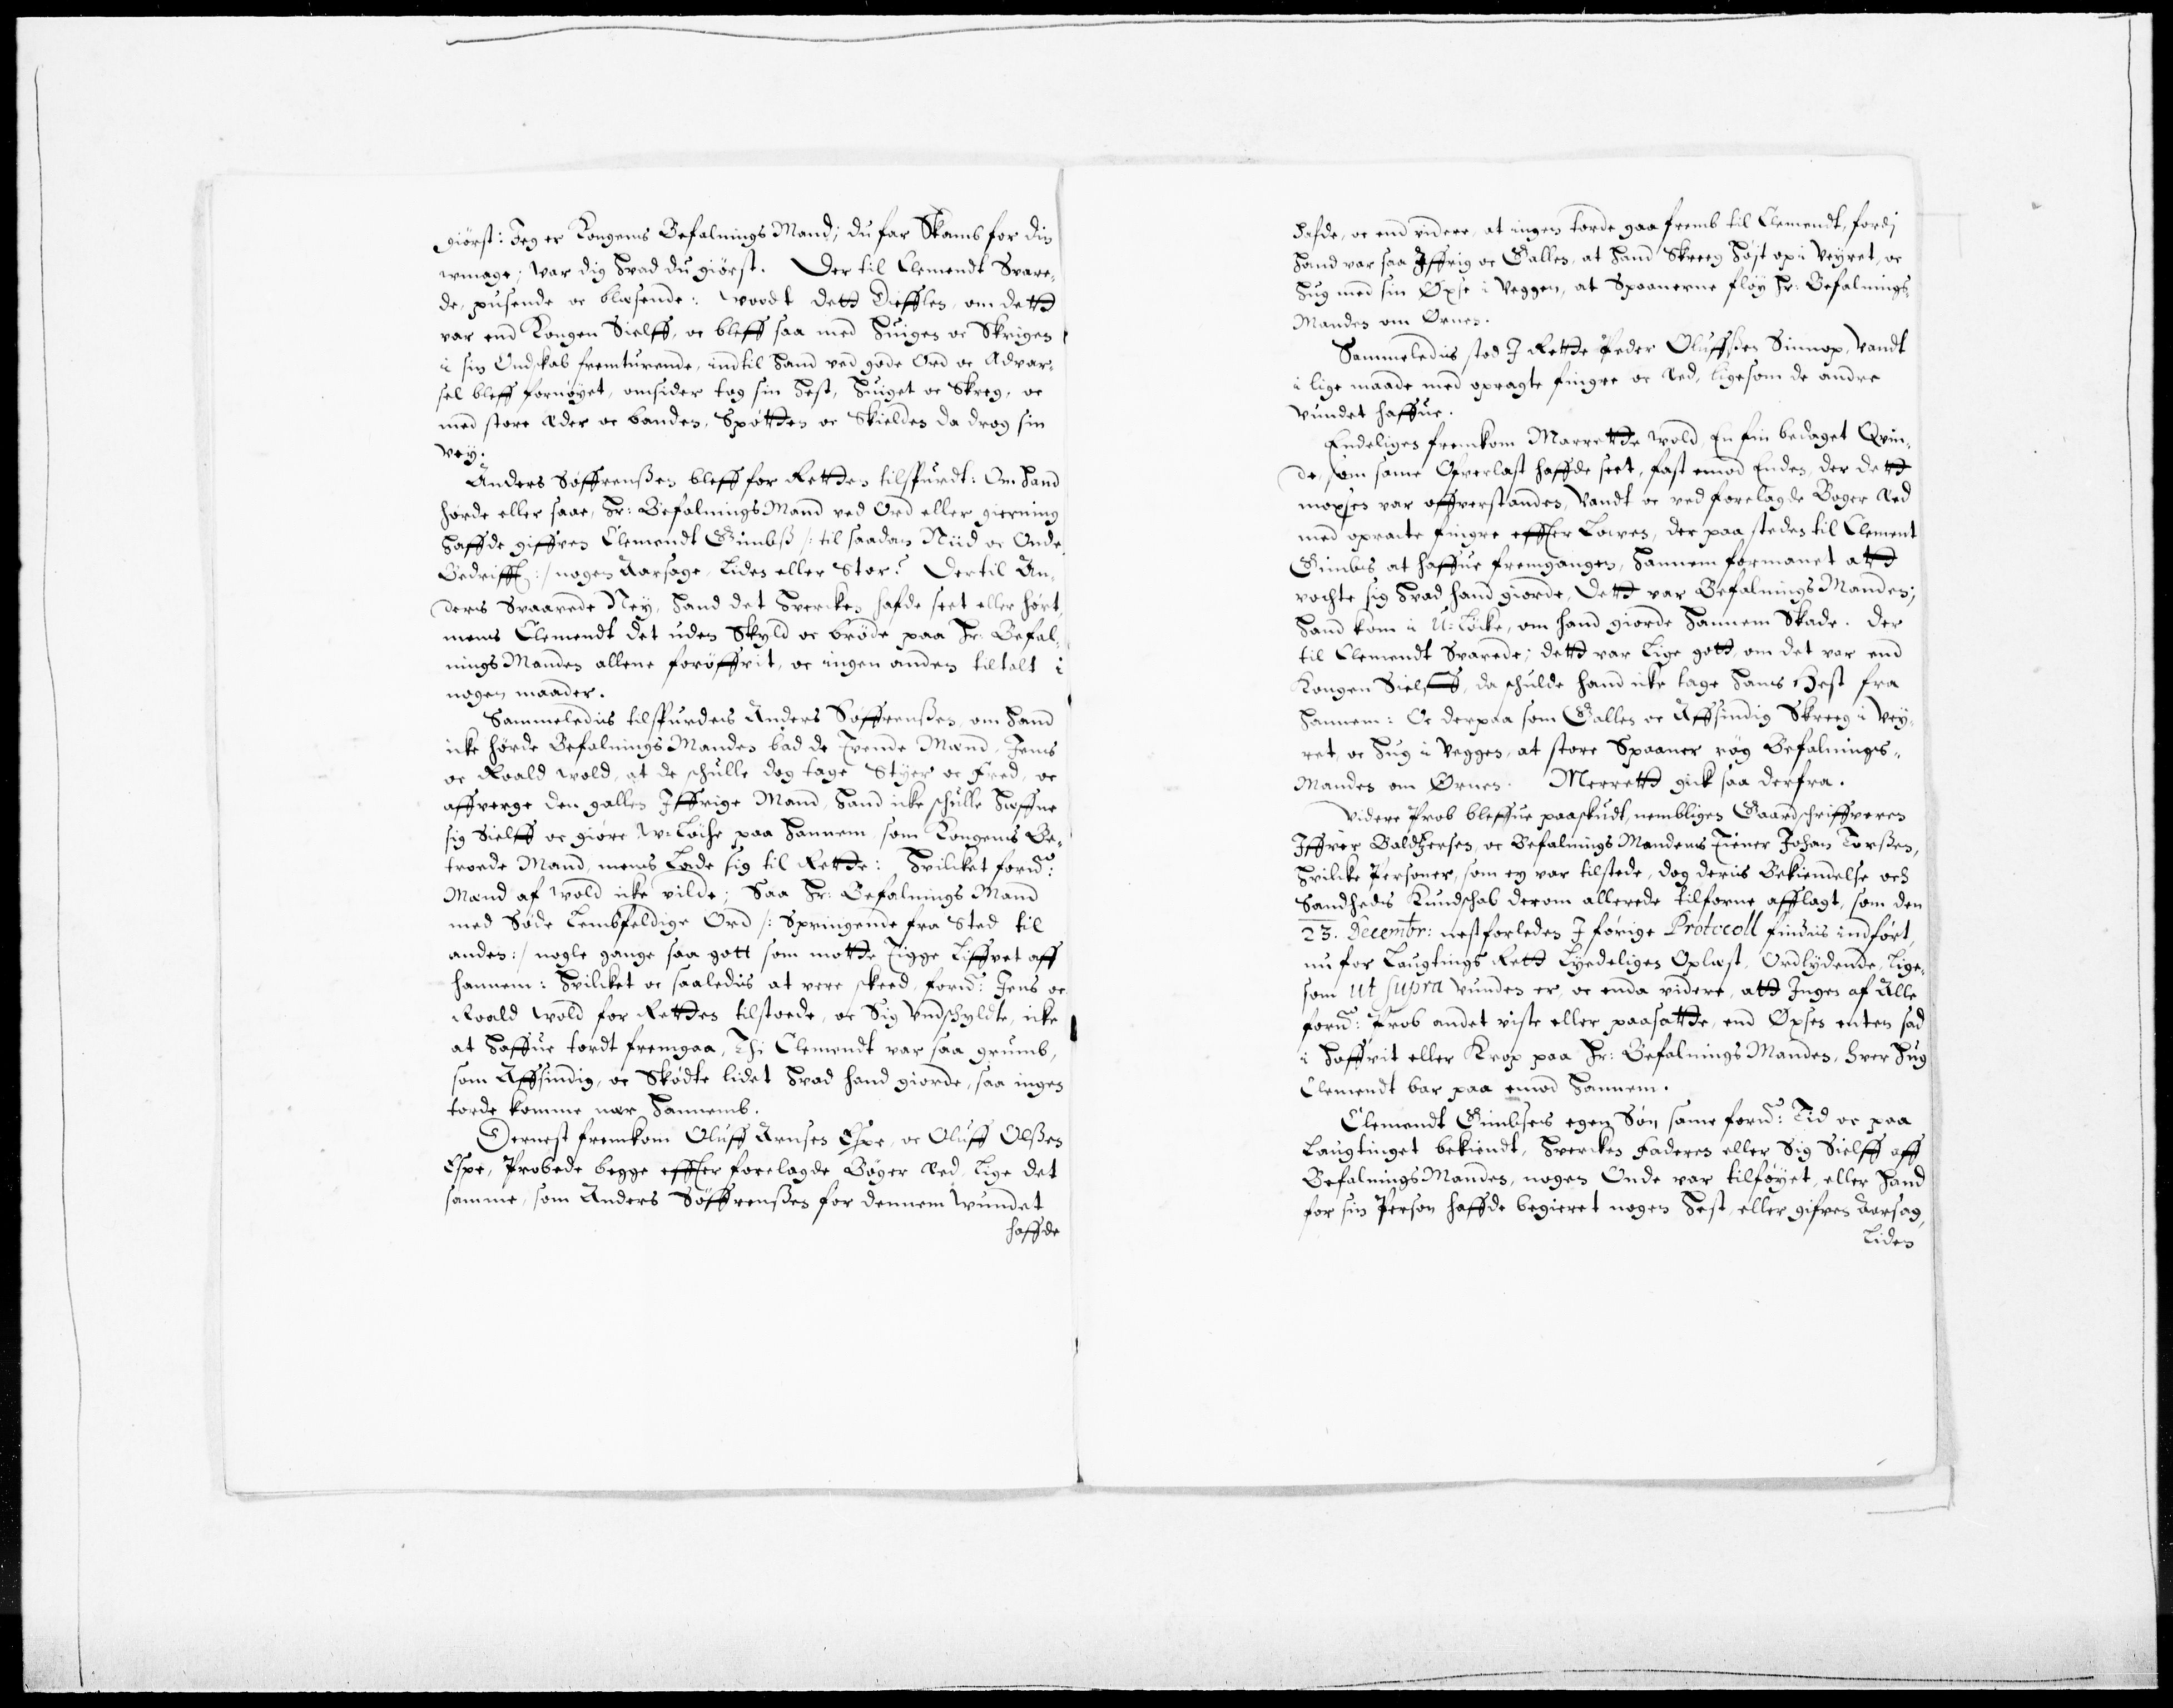 giörst: Jeg er Kongens Befalnings Mand; du far Skamb for din
wmage; war dig hvad du giörst. Der til Clemendt Svare-
de, pusende oc blæsende: woodt dett Diefflen, om dett
var end Kongen Sielff, oc bleff saa med huigen oc Skrigen
i sin Ondskab fremturende, indtil hand ved gode Ord oc Advar-
sel bleff fornøyet, omsider tog sin Hest, huiget oc Skreg, oc
med store Æder oc banden, Spøtten oc Skielden da drog sin
Vey.
Anders Søffrenßen bleff for Retten tilspurdt: Om hand
hørde eller saae, Hr: Befalnings Mand ved Ord eller gierning
haffde giffven Clemendt Gimbß /: til saadan Niid oc Onde
Bedrifft :/ nogen Aarsage, Liden eller Stor? Dertil An-
ders Svaarede Ney, hand det hvercken hafde seet eller hørt,
mens Clemendt det uden Skyld oc brøde paa Hr: Befal-
nings Manden allene forøffvit, oc ingen anden tiltalt i
nogen maader.
Sammeledis tilspurdes Anders Søffrenßen, om hand
icke hørde Befalnings Manden bad de Tvende Mænd, Jens
oc Roald Wold, at de schulle dog tage Styer oc Fred, oc
affverge den gallen Iffrige Mand, hand icke schulle haffne
sig Sielff oc giøre W:Løcke paa hannem, som Kongens Be-
troede Mand, mens Lade sig til Rette: Hvilcket fornd:
Mænd af Wold icke vilde; Saa Hr: Befalnings Mand
med Søde Lembfeldige Ord /: Springende fra Sted til
anden :/ nogle gange saa gott som motte Tigge Liffvet aff
hannem: Hvilcket oc saaledis at vere skeed, fornd: Jens oc
Roald Wold for Retten tilstoede, oc Sig Undschyldte, icke
at haffue tordt fremgaa, Thi Clemendt var saa grumb,
som Affsindig, oc Skødte lidet hvad hand giorde, saa ingen
torde komme nær hannemb.
Dernest fremkom Oluff Arnsen Espe, oc Oluff Olßen
Espe, Probede begge effter forelagde Bøger Æd, Lige det
samme, som Anders Søffrenßen for dennem Wundet
haffde
hafde, oc end videre, at ingen torde gaa fremb til Clemendt, fordj
hand var saa Iffrig oc Gallen, at hand Skreeg høyt op i Veyret, oc
hug med sin Øxse i Veggen, at Spaanerne fløy Hr: Befalnings-
Manden om Ørnen.
Sammeledis stod I Rette Peder Oluffßen Sinnop, Vandt
i lige maade med opragte fingre oc Æd, ligesom de andre
Vundet haffue.
Endeligen fremkom Marrette Wold, En fin bedaget Qvin-
de, som same Offverlast haffde seet, fast emod Enden, der dett
moxsen var offverstanden, Vandt oc ved forelagde Boger Æd
med opracte fingre effter Lowen, der paa steden til Clement
Gimbes at haffue fremgangen, hannem formanet att
vochte sig hvad hand giorde, Dett var Befalnings Manden;
hand kom i U:Løcke, om hand giorde hannem Skade. Der
til Clemendt Svarede; dett var Lige gott, om det var end
Kongen Sielff, da schulde hand icke tage hans Hest fra
hannem: Oc derpaa som Gallen oc Affsindig Skreeg i Vey-
ret, oc hug i Veggen, at store Spaaner røg Befalnings-
Manden om Ørnen. Merrett gick saa derfra.
Videre Prob bleffue paaskudt, nembligen Gaardschriffveren
Iffver Baldzersen, oc Befalnings Mandens Tiener Johan Torßen,
hvilcke Personer, som ey var tilstede, dog deris Bekiendelse och
Sandheds Kundschab derom allerede tilforne afflagt, som den
23. Decembr: nestforleden I førige Protocoll findis indført,
nu for Laugtings Rett Lyedeligen Oplæst, Ordlydende, Lige-
som ut supra Vunden er, oc enda videre, att Ingen af Alle
fornd: Prob andet viste eller paasatte, end Øxsen enten sad
i hoffvit eller Krop paa Hr: Befalnings Manden, hver hug
Clemendt bar paa emod hannem.
Clemendt Gimbses egen Søn same fornd: Tid oc paa
Laugtinget bekiendt, hvercken Faderen eller Sig Sielff aff
Befalnings Manden, nogen Onde var tilføyet, eller hand
for sin Person haffde begieret nogen Hest, eller gifven Aarsag,
Liden